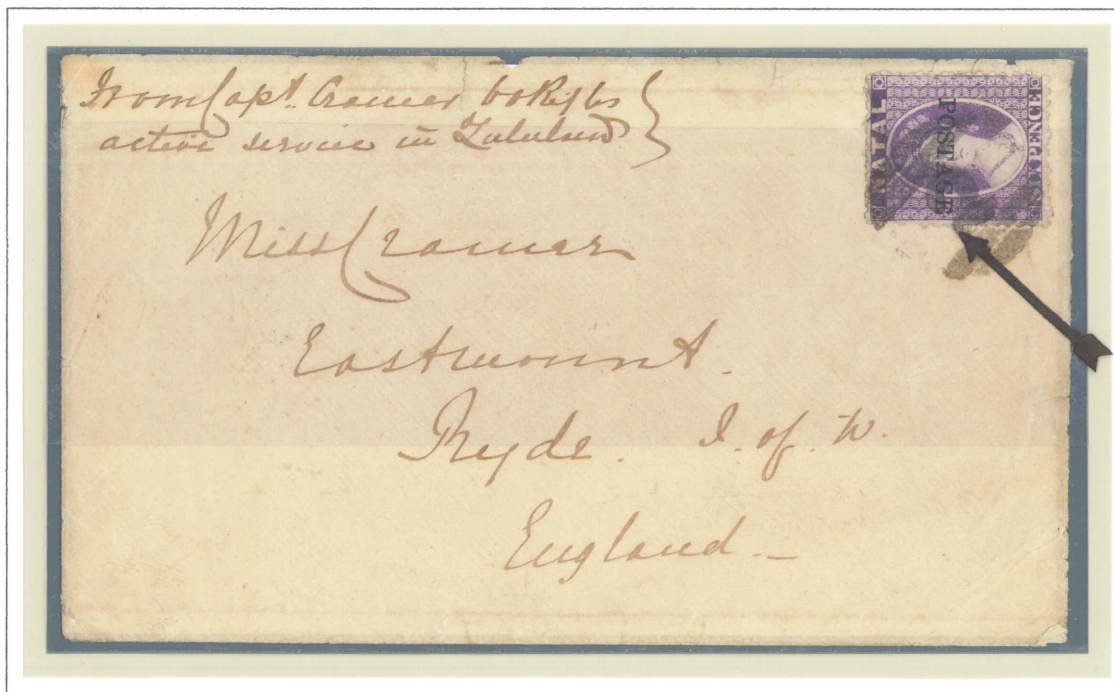 From Capt. Cramer 60 Rifles
active service in Zululand
NATAL
POSTAGE
SIXPENCE
Miss Cramer
Eastmount.
Ryde. I. of. W.
England. _